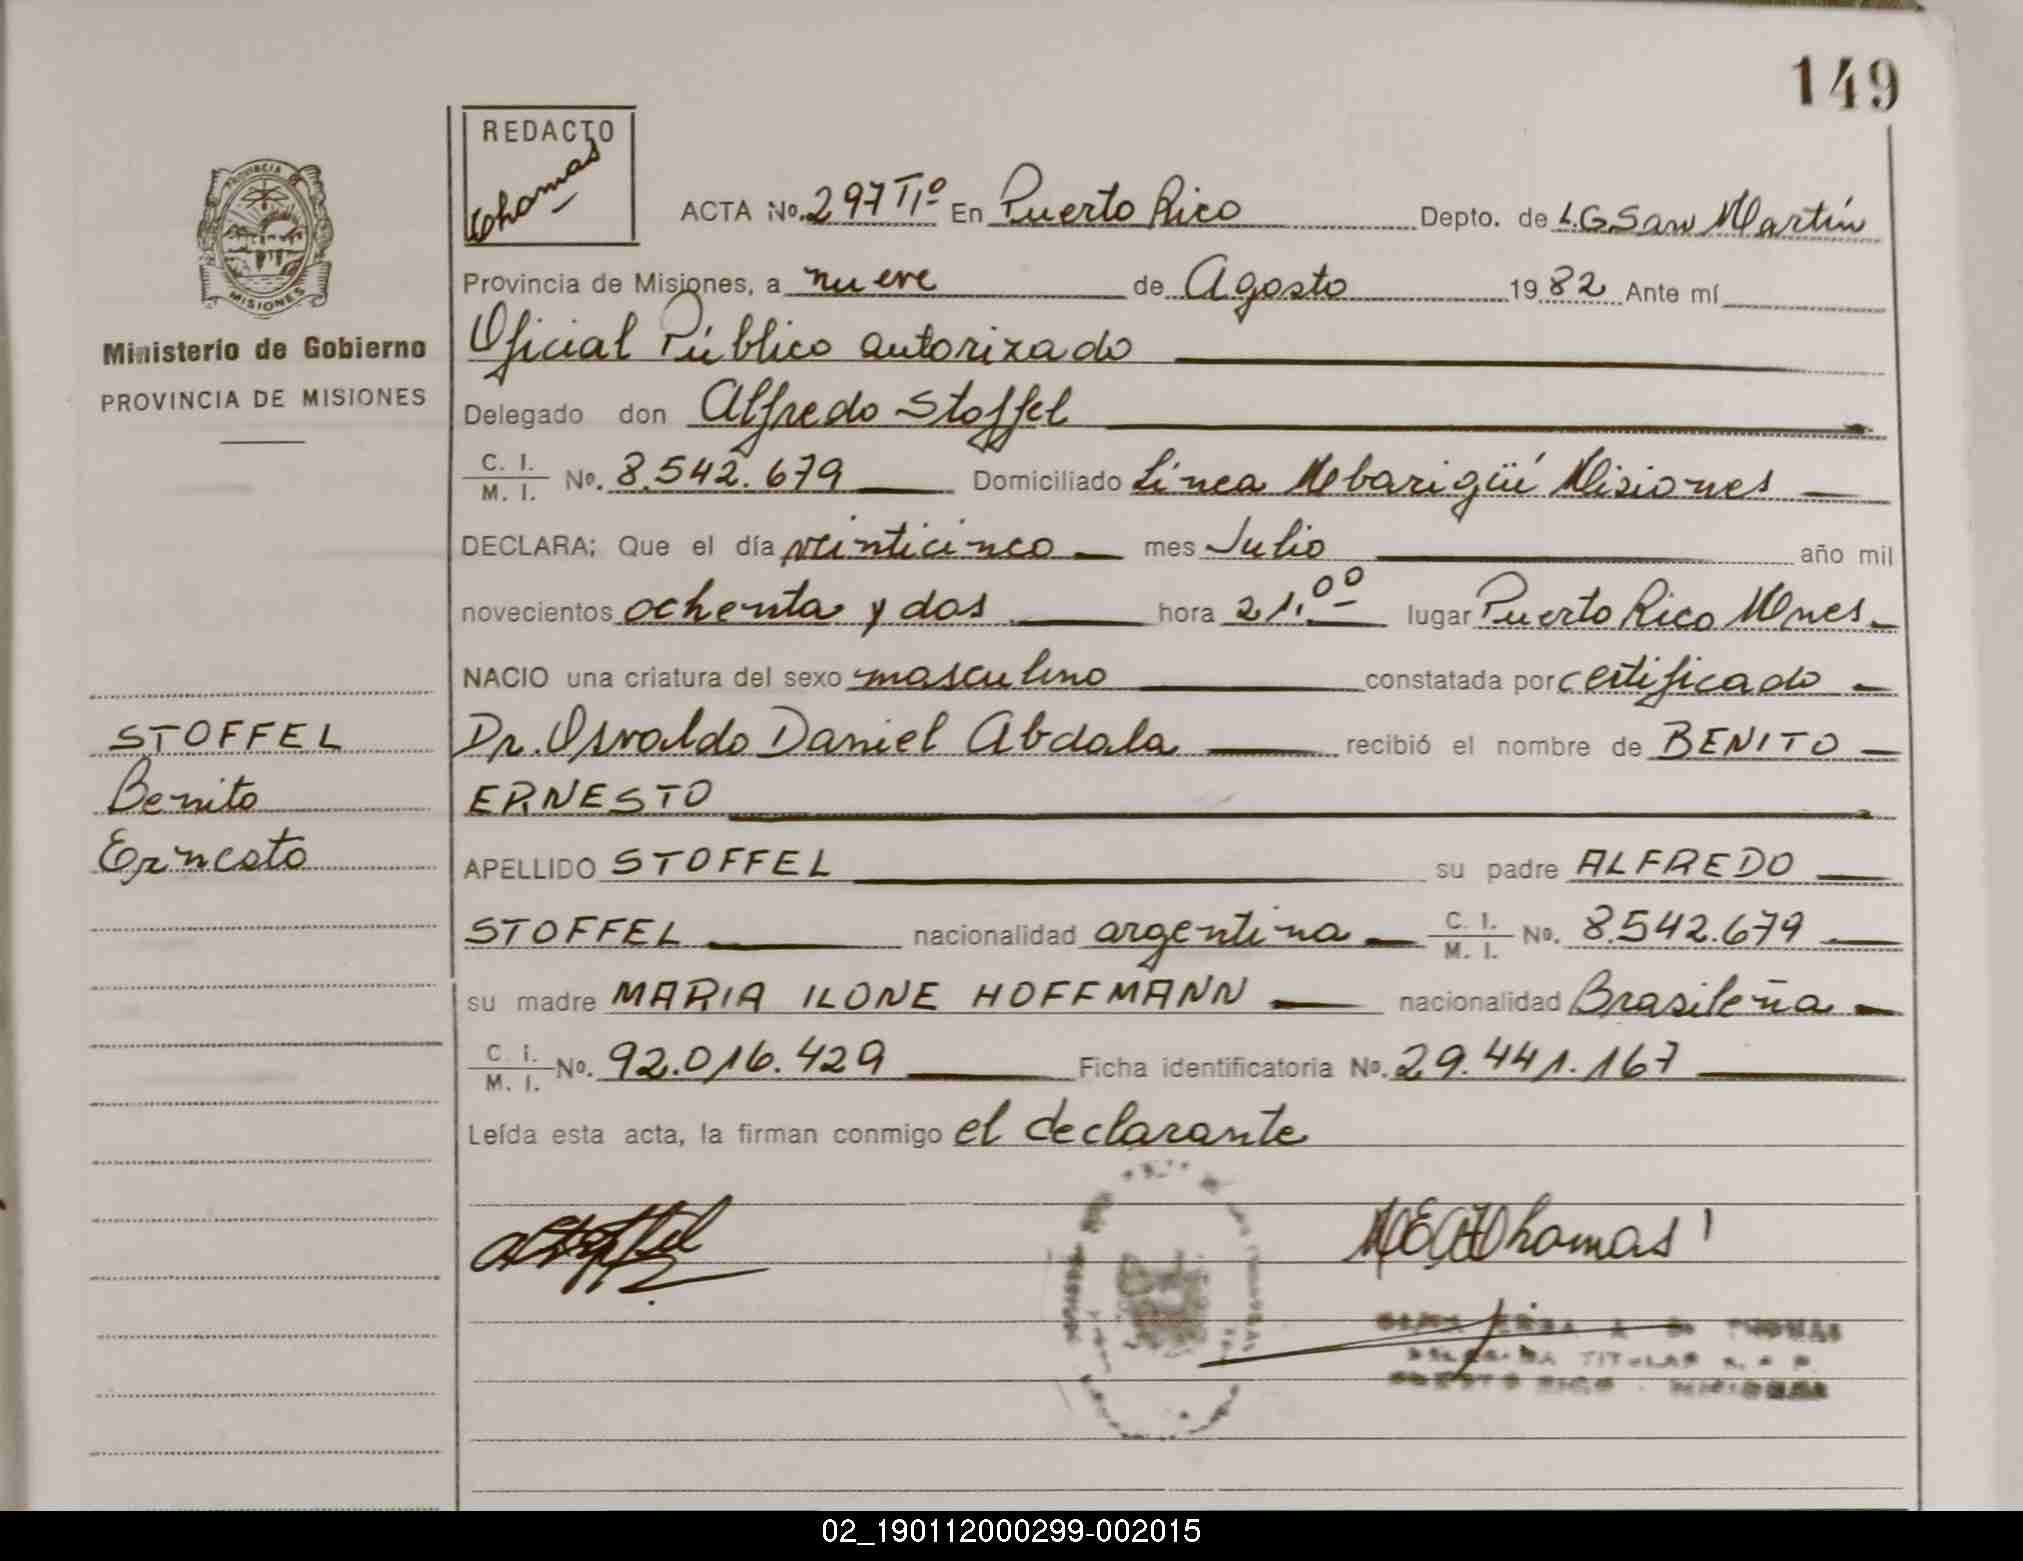 149
REDACTO
Thomas
PROVINCIA DE
MISIONES
Ministerio de Gobierno
PROVINCIA DE MISIONES
ACTA No. 297 Tº Iº En Puerto Rico Depto. de L.G.San Martín
Provincia de Misiones, a nueve de Agosto 1982 Ante mí
Oficial Público autorizado
Delegado don Alfredo Stoffel
C. I.
M. I. No. 8.542.679 Domiciliado Línea Mbarigüí Misiones
DECLARA; Que el día veinticinco mes Julio año mil
novecientos ochenta y dos hora 21.00 lugar Puerto Rico Mnes
NACIO una criatura del sexo masculino constatada por certificado
Dr. Osvaldo Daniel Abdala recibió el nombre de BENITO
ERNESTO
STOFFEL
Benito
Ernesto
APELLIDO STOFFEL su padre ALFREDO
STOFFEL nacionalidad argentina C. I. M. I. No. 8.542.679
su madre MARIA ILONE HOFFMANN nacionalidad Brasileña
C. I.
M. I. No. 92.016.429 Ficha identificatoria No. 29.441.167
Leída esta acta, la firman conmigo el declarante
AStoffel
Thomas
THOMAS
TITULAR R. P.
PUERTO RICO - MISIONES
02_190112000299-002015